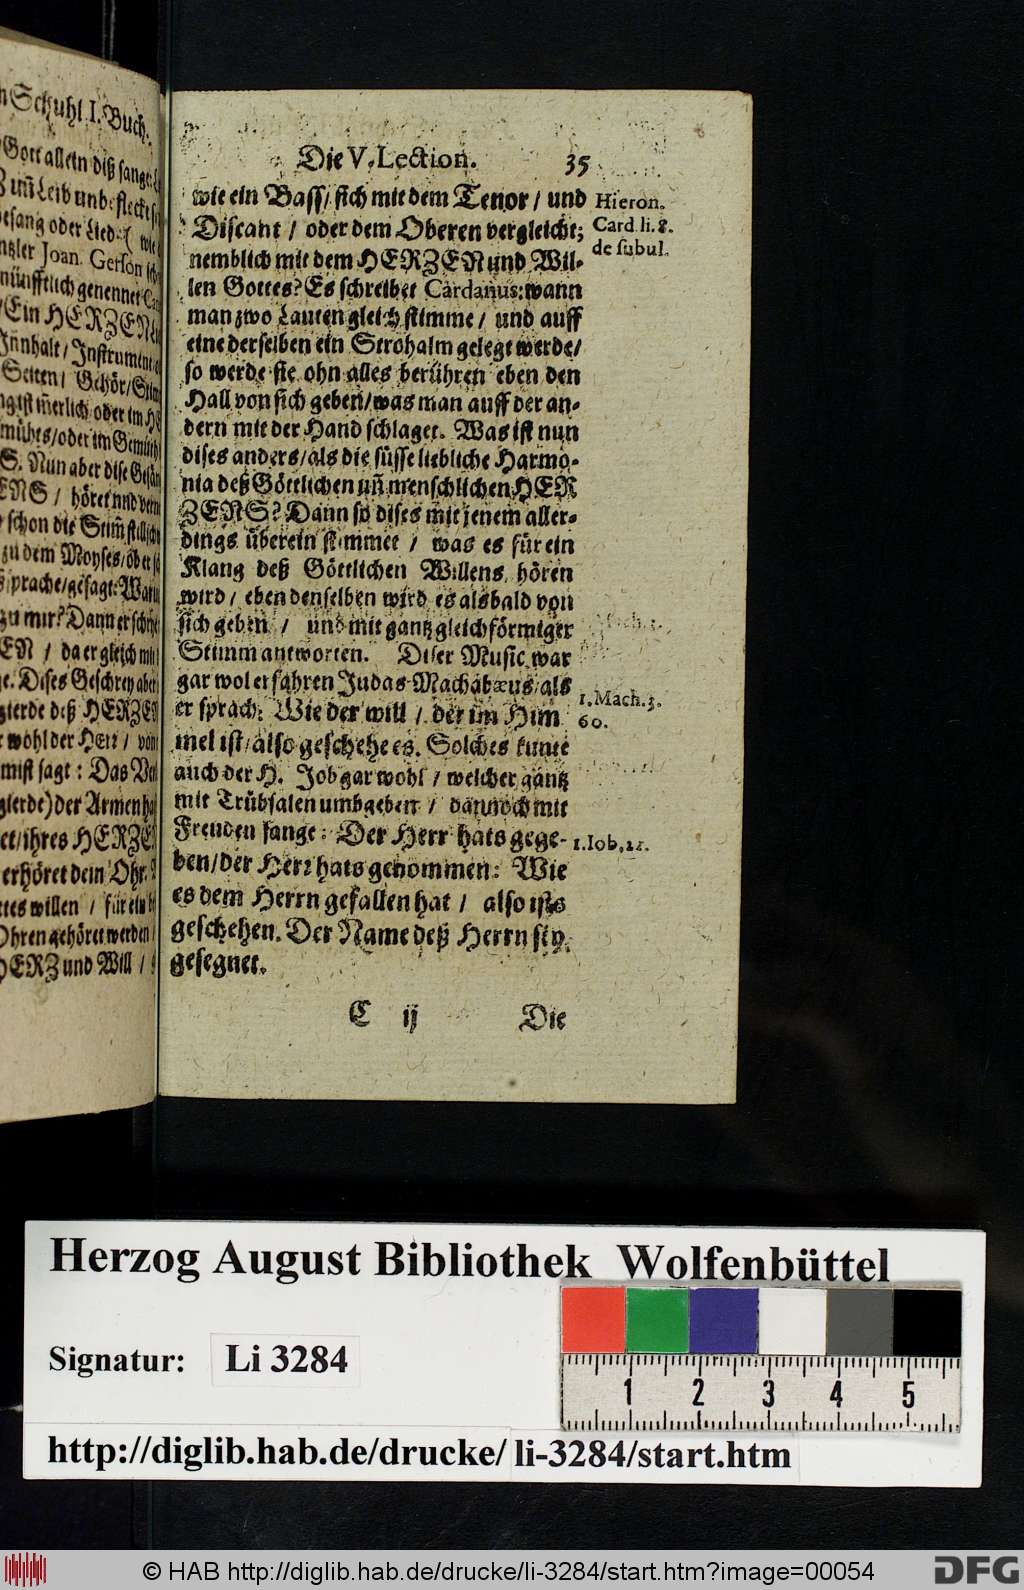 n Schuhl I. Buch.
Gott allein diß sange
Leib unbefleckt
esang oder Lied
Joan. Gerson
münfftlich genennet
Ein HERZEN
Innhalt / Instrument
Seiten / Gehör / Stim
merlich oder im
mühts / oder im Gemüth
S. Nun aber dise Gesän
ENS / höret und
schon die Stim̃
zu dem Moyses /
sprache / gesagt: Waru
zu mir? Dann er
EN / da er gleich
ge. Dises Geschrey aber
gierde deß HERZE
wohl der Herr / von
mist sagt: Das Ver
gierde) der Armen
et / ihres HERZE
erhöret dein Ohr.
ttes willen / für ein
Ohren gehöret werden
HERZ und Will /
Die V. Lection. 35
wie ein Bass / sich mit dem Tenor / und
Discant / oder dem Oberen vergleicht;
nemblich mit dem HERZEN und Wil-
len Gottes? Es schreibet Cardanus: wann
man zwo Lauten gleich stimme / und auff
eine derselben ein Strohalm gelegt werde /
so werde sie ohn alles berühren eben den
Hall von sich geben / was man auff der an-
dern mit der Hand schlaget. Was ist nun
dises anders / als die süsse liebliche Harmo-
nia deß Göttlichen uñ menschlichen HER
ZENS? Dann so dises mit jenem aller-
dings überein stimmet / was es für ein
Klang deß Göttlichen Willens hören
wird / eben denselben wird es alsbald von
sich geben / und mit gantz gleichförmiger
Stimm antworten. Diser Music war
gar wol erfahren Judas Machabæus / als
er sprach: Wie der will / der im Him
mel ist / also geschehe es. Solches kunte
auch der H. Job gar wohl / welcher gantz
mit Trübsalen umbgeben / dannoch mit
Freuden sange: Der Herr hats gege-
ben / der Herr hats genommen: Wie
es dem Herrn gefallen hat / also ists
geschehen. Der Name deß Herrn sey
gesegnet.
Hieron.
Card li. 8.
de subul.
1. Mach. 3.
60.
1. Iob, 21.
C ij Die
Herzog August Bibliothek Wolfenbüttel
Signatur: Li 3284
1 2 3 4 5
http://diglib.hab.de/drucke/ li-3284/start.htm
© HAB http://diglib.hab.de/drucke/li-3284/start.htm?image=00054
DFG